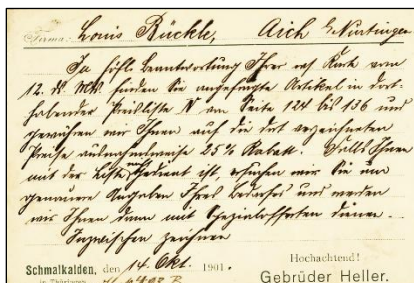 Firma: Louis Rückle, Aich b/Nürtingen
In höfl. Beantwortung Ihrer Karte vom
12. ds. Mts. finden Sie angefragte Artikel in dort-
habender Preisliste N an Seite 124 bis 136 und
gewähren wir Ihnen auf die dort verzeichneten
Preise ausnahmsweise 25% Rabatt. Falls Ihnen
mit der Liste gedient ist, ersuchen wir Sie um
genauere Angaben Ihres Bedarfes und werden
wir Ihnen dann mit Spezialofferten dienen.
Inzwischen zeichnen
Hochachtend!
Schmalkalden, den 14. Okt. 1901.
in Thüringen
Gebrüder Heller.